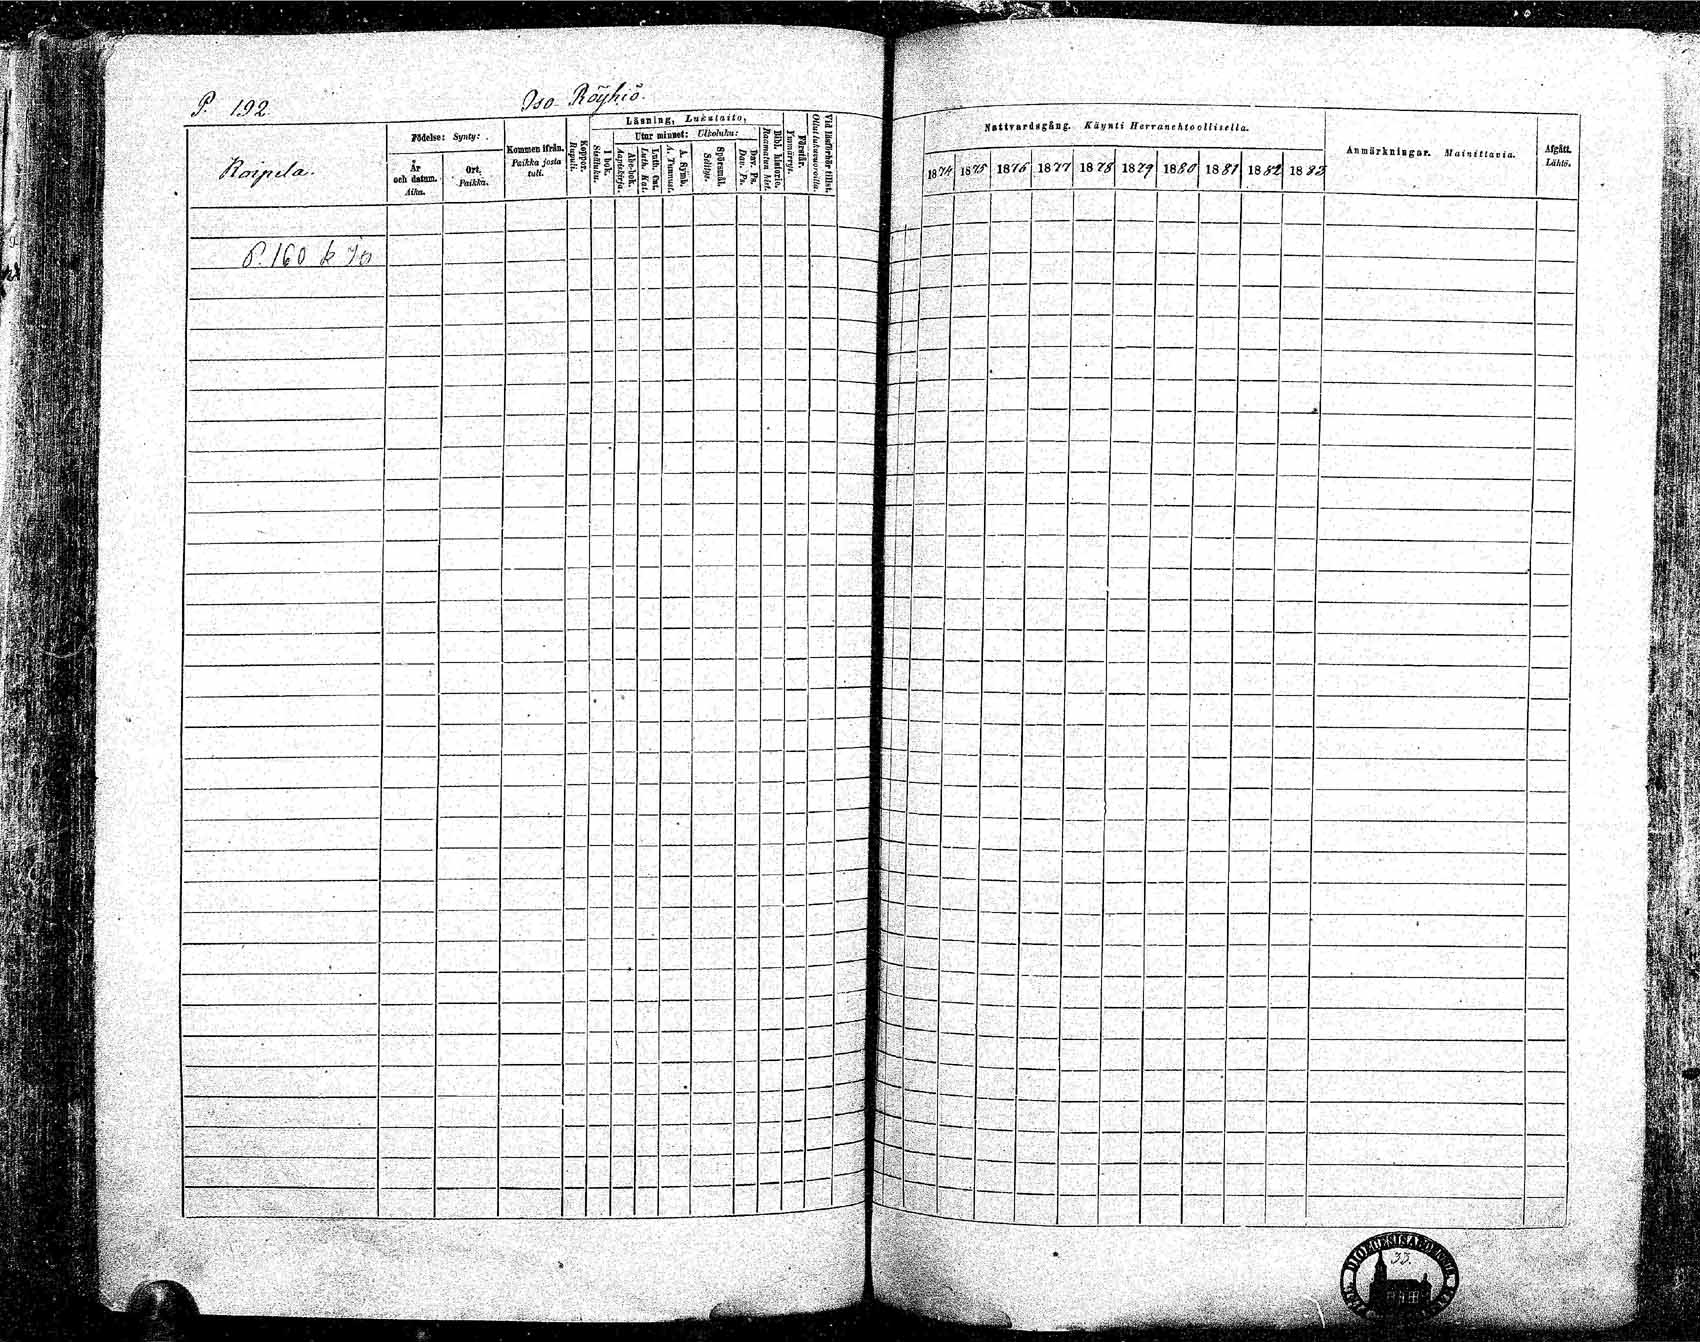 P. 192.
Iso Röyhiö.
Roipela.
Födelse: Synty:
År och datum. Aika.
Ort. Paikka.
Kommen ifrån. Paikka josta tuli.
Koppor. Rupuli.
Läsning, Lukulaito,
I bok. Sisäluku.
Utur minnet: Ulkoluku:
Abc-bok. Aapiskirja.
Luth. Cat. Luth. Kat.
A. Symb. A. Tunnust.
Spörsmål. Selitys.
Dav. Ps. Dav. Ps.
Bibl. historie. Raamatun hist.
Förstår. Ymmärrys.
Vid läsförhör tillst. Ollut lukuvuoroilla.
Nattvardsgång. Käynti Herranehtoollisella.
1874 1875 1876 1877 1878 1879 1880 1881 1882 1883
Anmärkningar. Mainittavia.
Afgått. Lähtö.
P. 160 k
33.